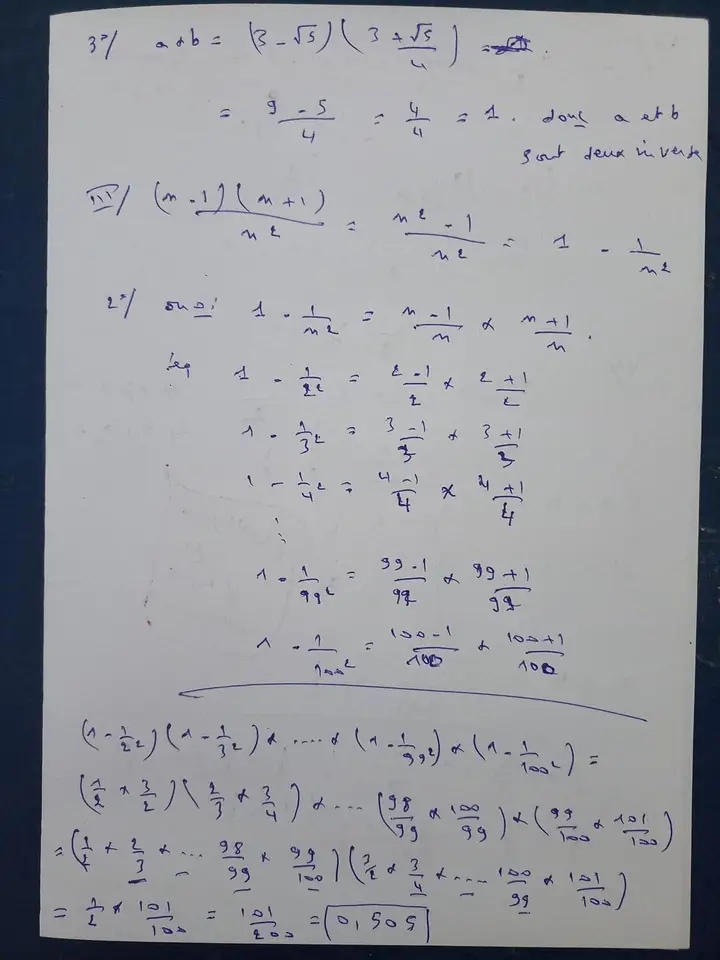 3°/ a × b = (3 - √5) ( (3 + √5)/4 ) =
= (9 - 5)/4 = 4/4 = 1 . donc a et b
sont deux inverse
III/ (n - 1)(n + 1)/n² = (n² - 1)/n² = 1 - 1/n²
2°/ on a : 1 - 1/n² = (n - 1)/n × (n + 1)/n .
1 - 1/2² = (2 - 1)/2 × (2 + 1)/2
1 - 1/3² = (3 - 1)/3 × (3 + 1)/3
1 - 1/4² = (4 - 1)/4 × (4 + 1)/4
⋮
1 - 1/99² = (99 - 1)/99 × (99 + 1)/99
1 - 1/100² = (100 - 1)/100 × (100 + 1)/100
(1 - 1/2²)(1 - 1/3²) × ..... × (1 - 1/99²) × (1 - 1/100²) =
(1/2 × 3/2)(2/3 × 3/4) × ... (98/99 × 100/99) × (99/100 × 101/100)
= (1/2 × 2/3 × ... 98/99 × 99/100)(3/2 × 3/4 × .... 100/99 × 101/100)
= 1/2 × 101/100 = 101/200 = 0,505